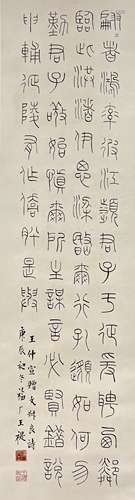 翩〻者鴻率彼江濱君子于征爰聘西鄰
臨此洪渚伊思梁岷爾行孔邈如何勿
勤君子敬始慎爾所主謀言必賢錯說
申輔延陵有作僑肸是與
王仲宣贈文叔良詩
庚辰初冬福厂王禔